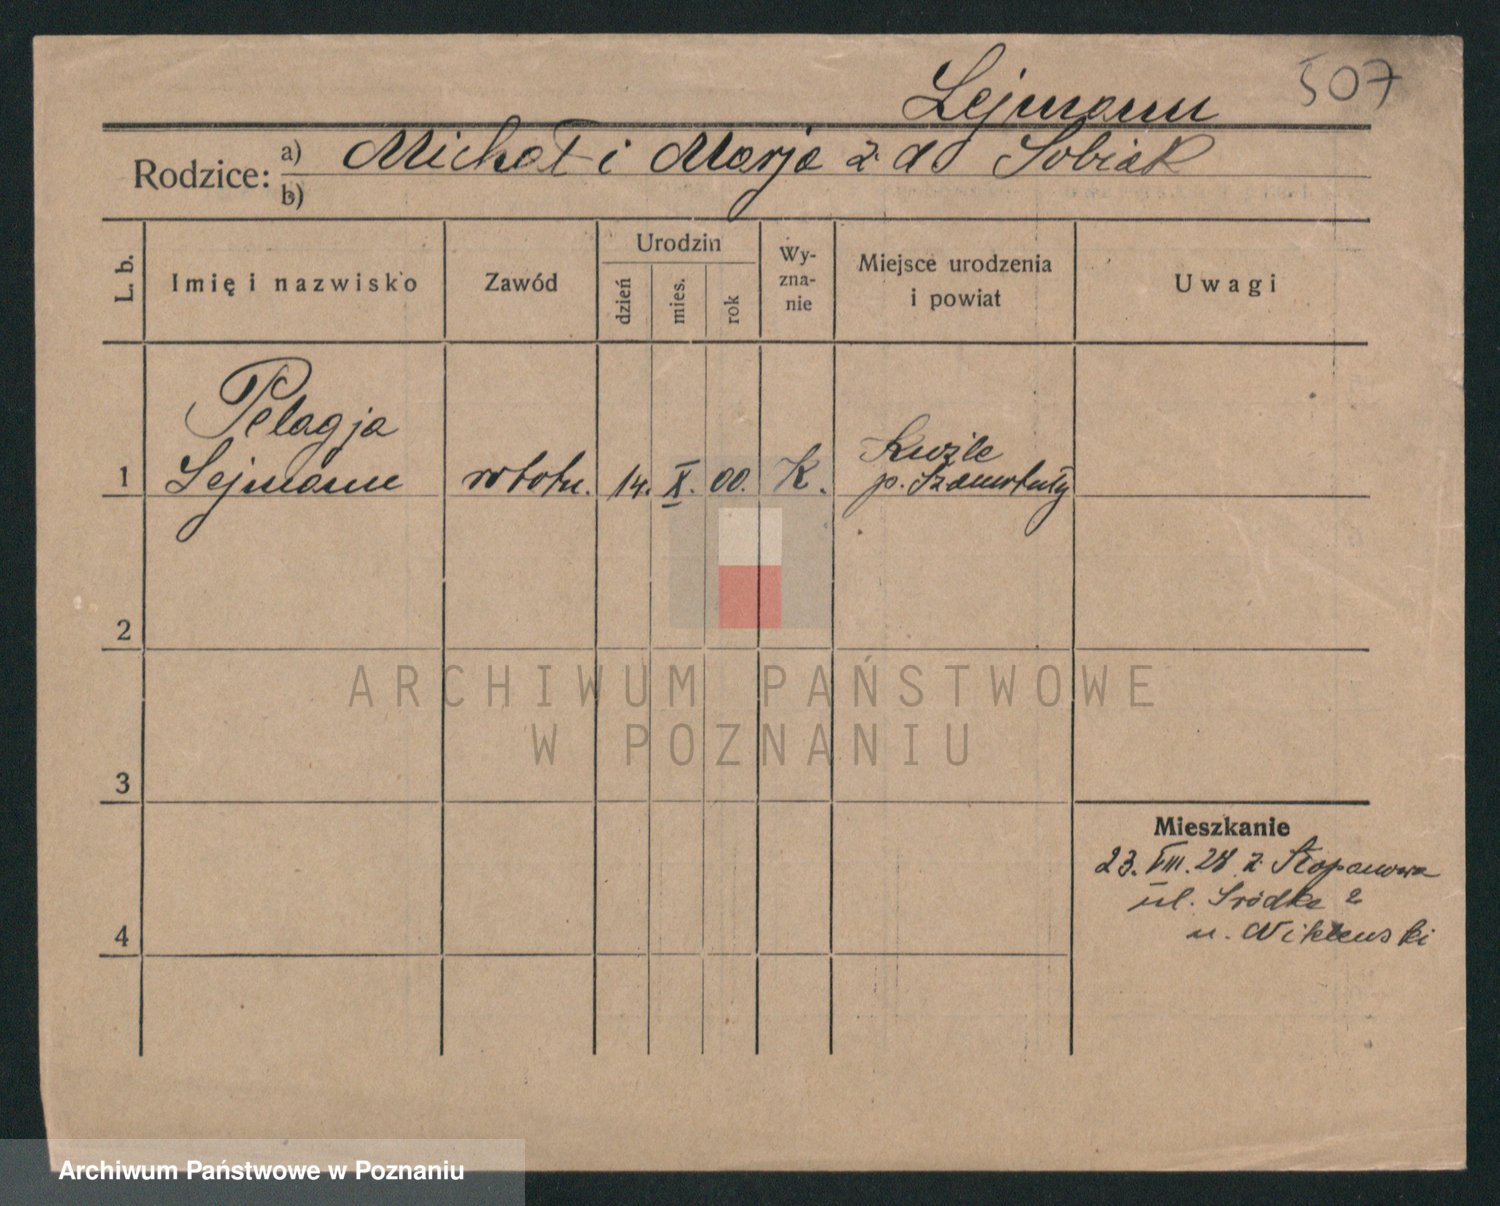 507
Lejmann
Rodzice: a) Michał i Marja z d. Sobiak
b)
L. b.
Imię i nazwisko
Zawód
Urodzin
dzień
mies.
rok
Wy-
zna-
nie
Miejsce urodzenia
i powiat
Uwagi
Pelagja
1 Lejmann robotn. 14. X. 00. K.
p. Szamotuły
2
3
4
Mieszkanie
23. VIII. 28 z
ul. Śródka 2
ARCHIWUM PAŃSTWOWE
W POZNANIU
Archiwum Państwowe w Poznaniu